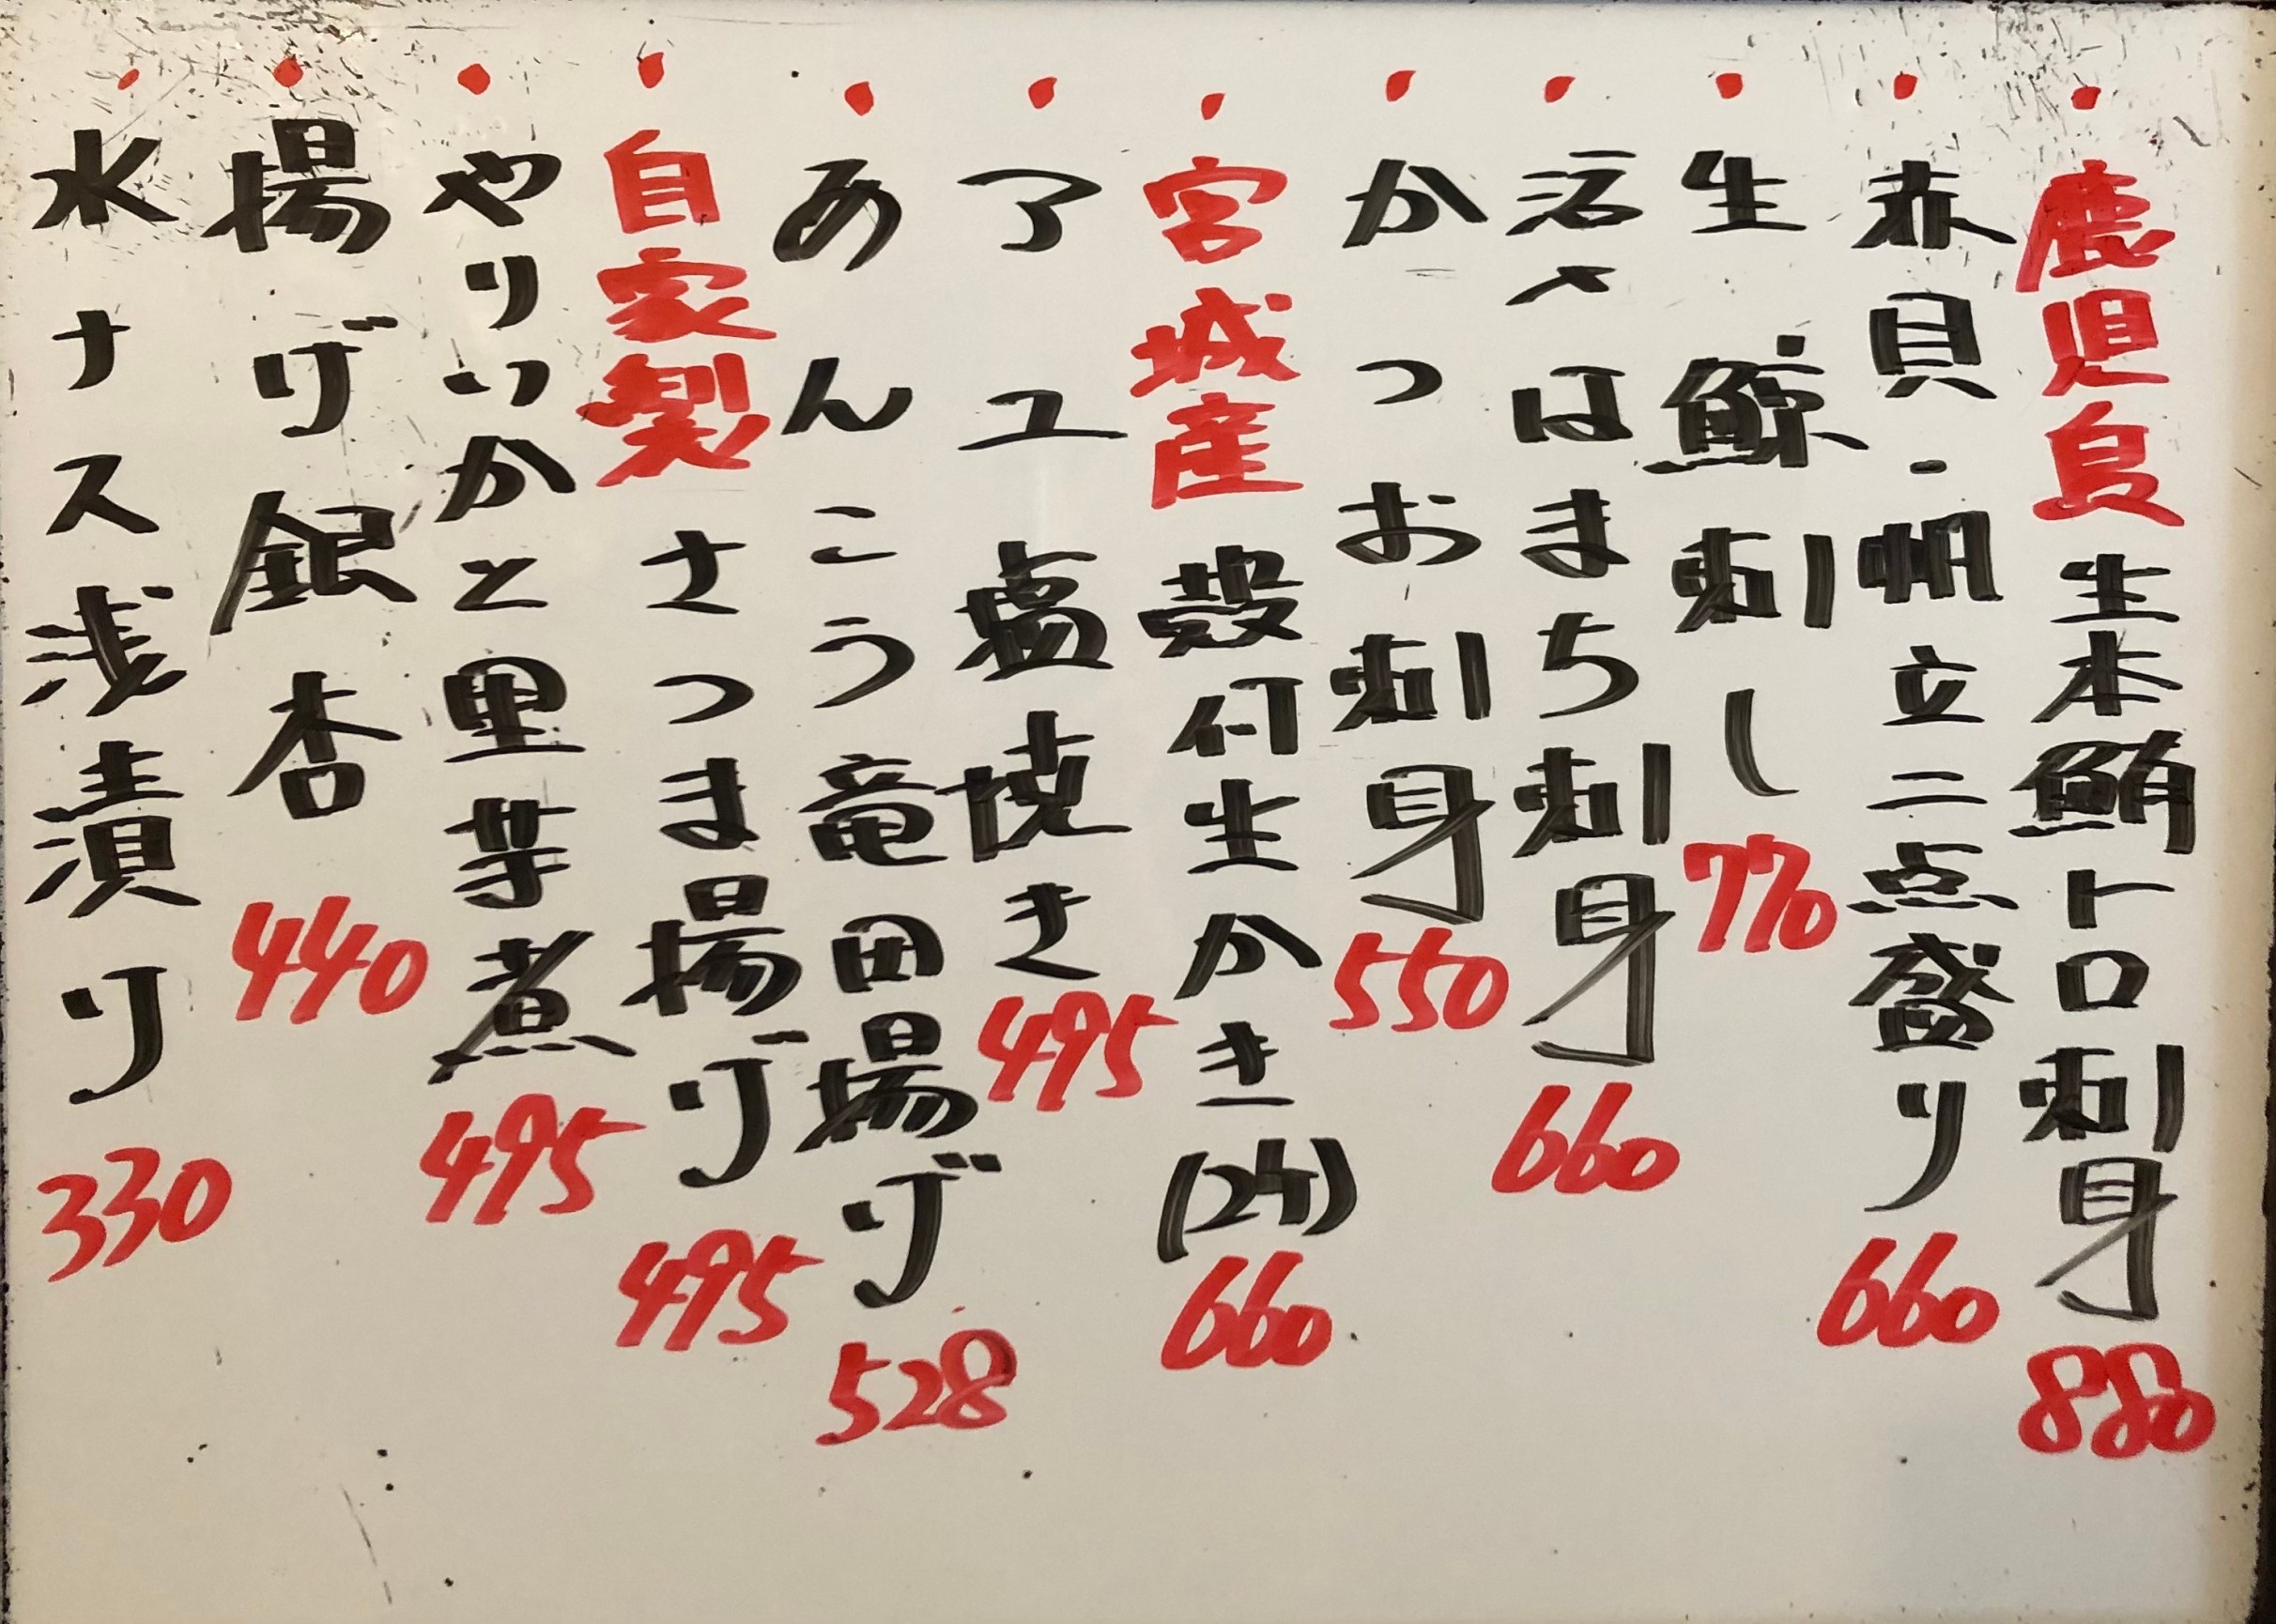 ・鹿児島生本鮪トロ刺身 880
・赤貝・帆立二点盛り 660
・生鯨刺し 770
・活〆はまち刺身 660
・かつお刺身 550
・宮城産殻付生かき(2ケ) 660
・アユ塩焼き 495
・あんこう竜田揚げ 528
・自家製さつま揚げ 495
・やりいかと里芋煮 495
・揚げ銀杏 440
・水ナス浅漬り 330